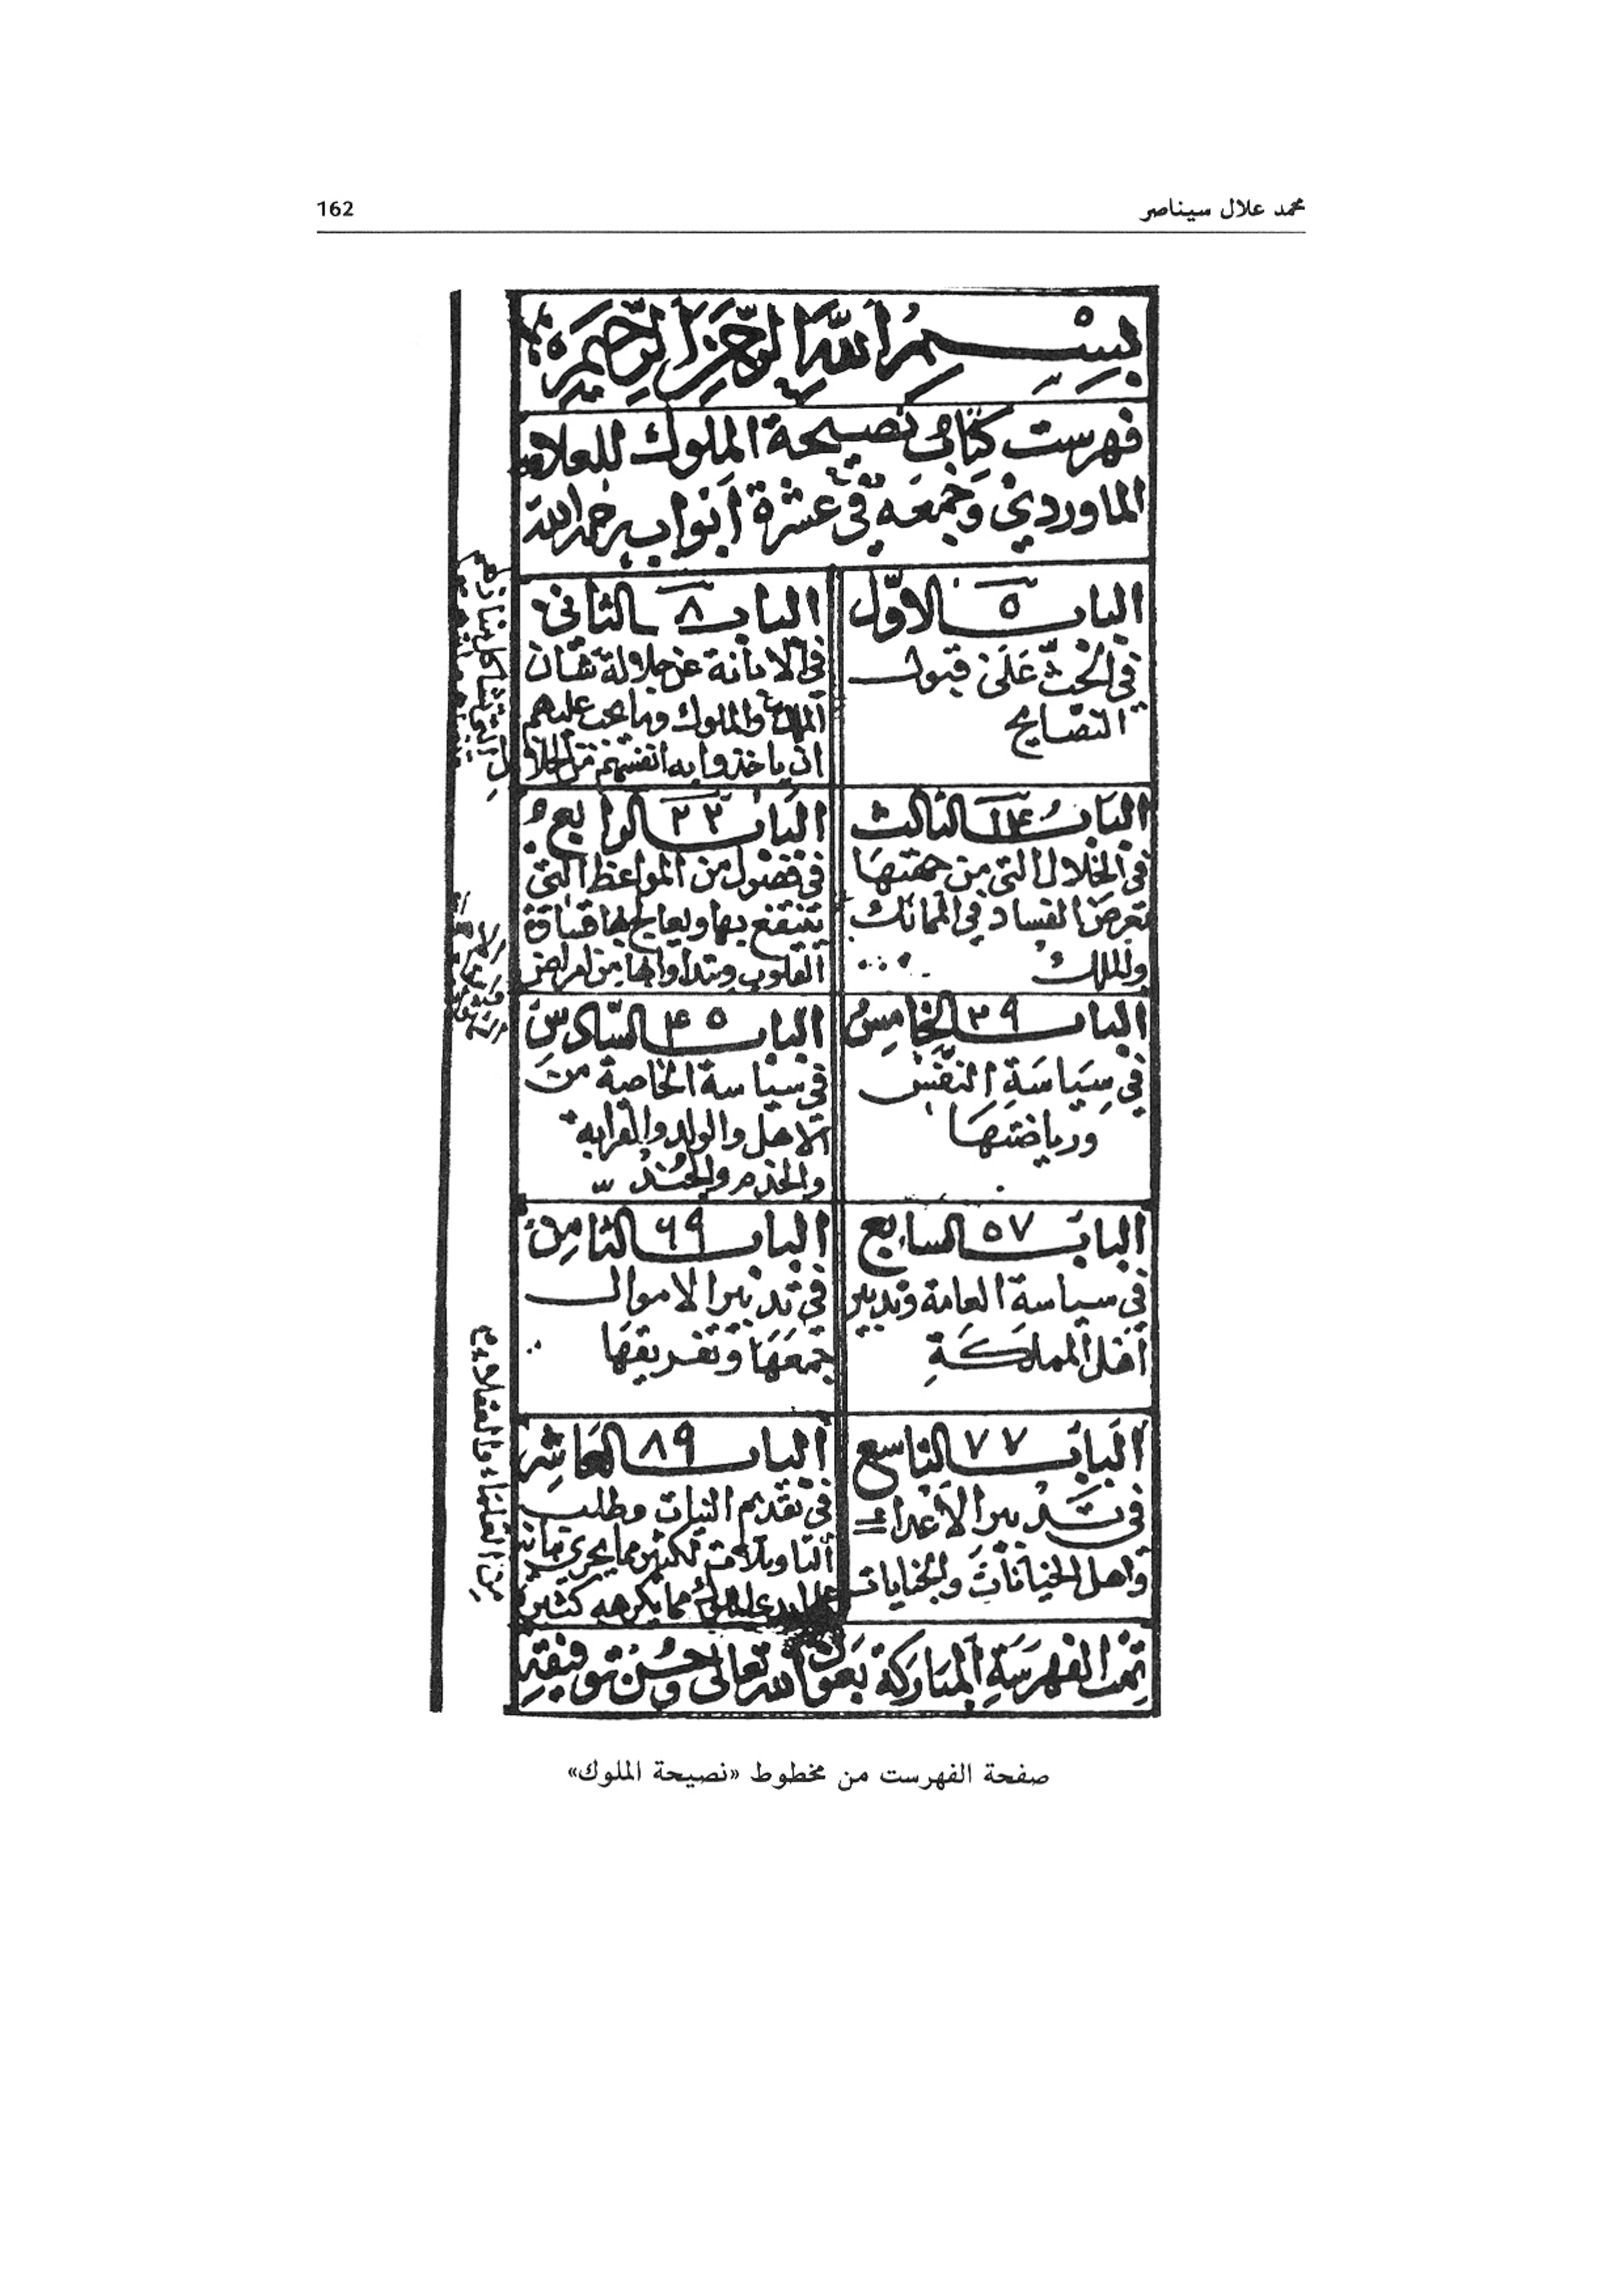 محمد علال سيناصر
162
بسم الله الرحمن الرحيم
فهرست كتاب نصيحة الملوك للعلامة
الماوردي وجمعه في عشرة ابواب رحمه الله
الباب ٥ الاول
في الحث على قبول
النصايح
الباب ٨ الثاني
في الابانة عن جلالة شان
الملك والملوك وما يجب عليهم
ان ياخذوا به انفسهم من
الباب ١٤ الثالث
في الخلال التي من جهتها
تعرض الفساد في الممالك
والملك
الباب ٢٣ الرابع
في فصول من المواعظ التي
ينتفع بها ويعالج بها قساوة
القلوب
الباب ٣٩ الخامس
في سياسة النفس
ورياضتها
الباب ٤٥ السادس
في سياسة الخاصة من
الاهل والولد والقرابة
والخدم والجند
الباب ٥٧ السابع
في سياسة العامة وتدبير
اهل المملكة
الباب ٦٩ الثامن
في تدبير الاموال
جمعها وتفريقها
الباب ٧٧ التاسع
في تدبير الاعداء
واهل الخيانات والجنايات
الباب ٨٩ العاشر
في تقديم النيات وطلب
التاويلات لكثير مما يجري
مما يكرهه كثير
تمت الفهرسة المباركة بعون الله تعالى وحسن توفيقه
صفحة الفهرست من مخطوط «نصيحة الملوك»